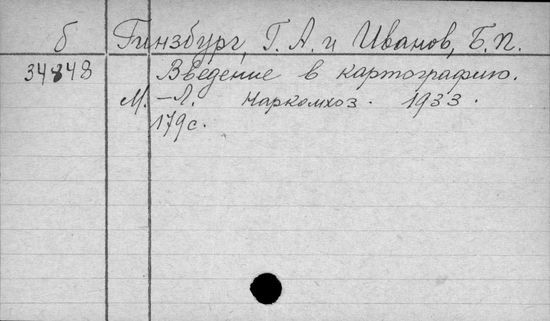 б Гинзбург, Г. А. и Иванов, Б. П.
34848 Введение в картографию.
М.-Л. Наркомхоз. 1933.
179 с.